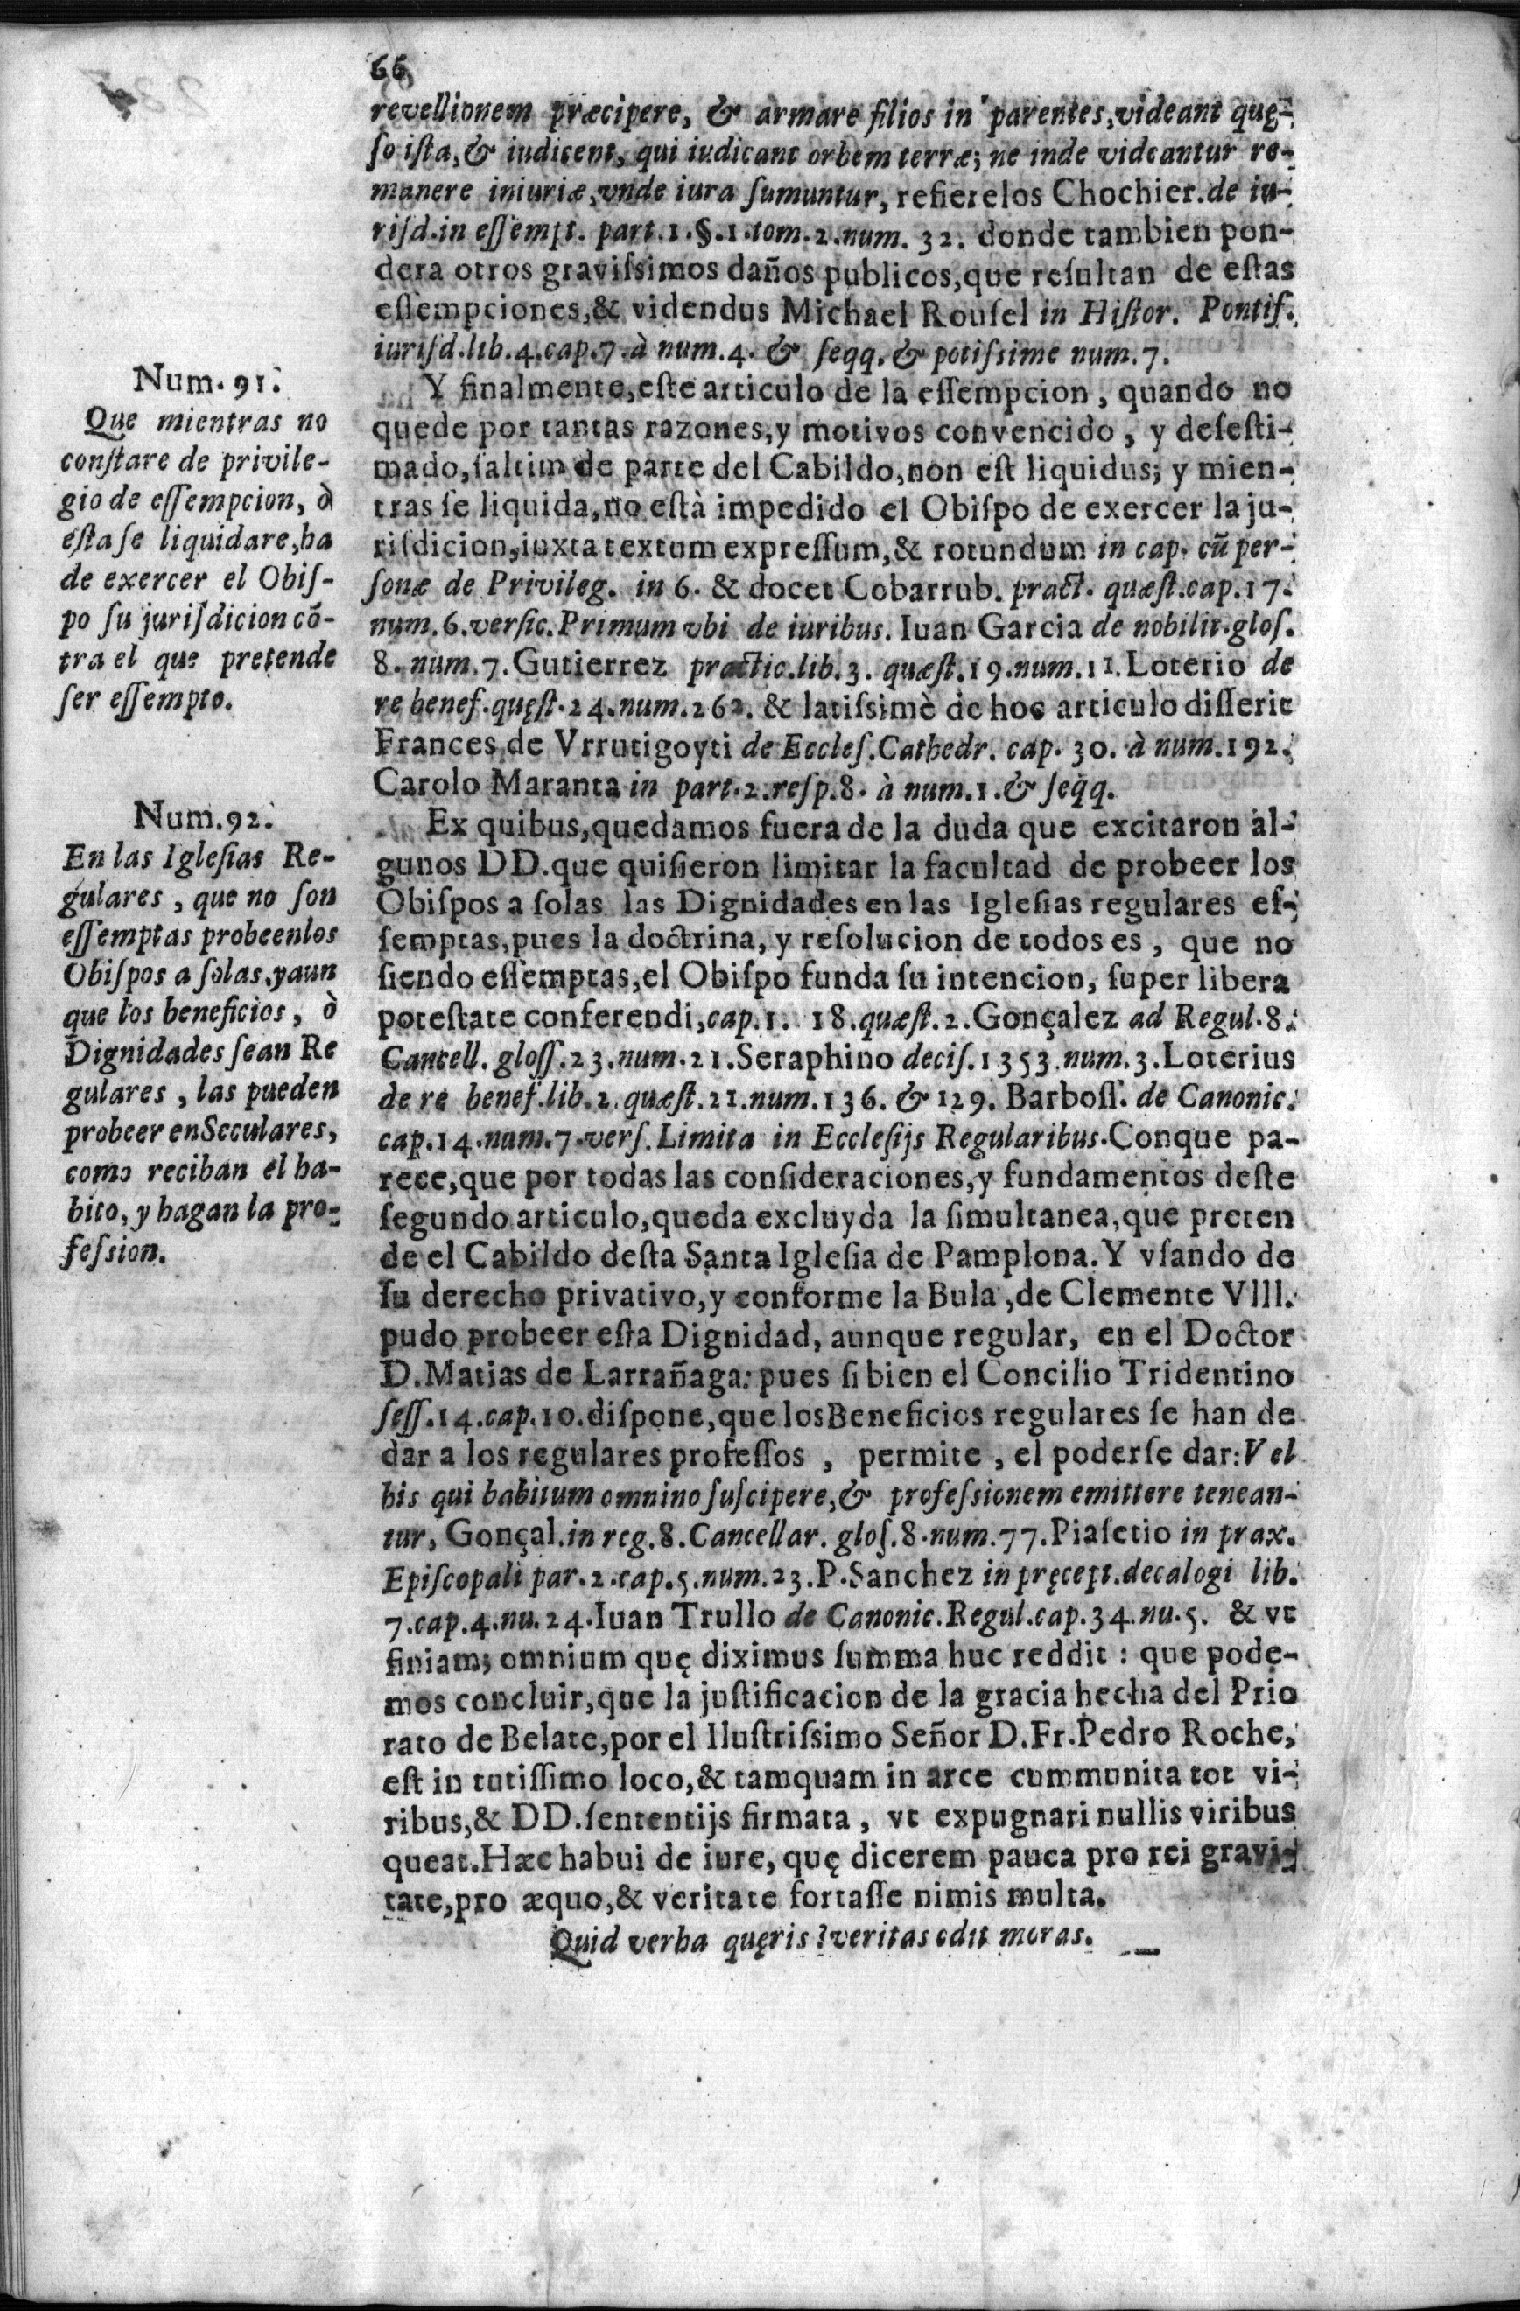 66
revellionem præcipere, & armare filios in parentes, videant quę-
ſo iſta, & iudicent, qui iudicant orbem terræ; ne inde videantur re-
manere iniuriæ, vnde iura ſumuntur, refierelos Chochier. de iu-
riſd. in eſſempt. part. 1. §. 1. tom. 2. num. 32. donde tambien pon-
dera otros graviſsimos daños publicos, que reſultan de eſtas
eſſempciones, & videndus Michael Rouſel in Hiſtor. Pontif.
iuriſd. lib. 4. cap. 7. à num. 4. & ſeqq. & potiſsime num. 7.
Y finalmente, eſte articulo de la eſſempcion, quando no
quede por tantas razones, y motivos convencido, y deſeſti-
mado, ſaltim de parte del Cabildo, non eſt liquidus; y mien-
tras ſe liquida, no eſtà impedido el Obiſpo de exercer la ju-
riſdicion, iuxta textum expreſſum, & rotundum in cap. cū per-
ſonæ de Privileg. in 6. & docet Cobarrub. pract. quæſt. cap. 17.
num. 6. verſic. Primum vbi de iuribus. Iuan Garcia de nobilit. gloſ.
8. num. 7. Gutierrez practic. lib. 3. quæſt. 19. num. 11. Loterio de
re benef. quęſt. 24. num. 262. & latiſsimè de hoc articulo diſſerit
Frances de Vrrutigoyti de Eccleſ. Cathedr. cap. 30. à num. 192.
Carolo Maranta in part. 2. reſp. 8. à num. 1. & ſeqq.
Ex quibus, quedamos fuera de la duda que excitaron al-
gunos DD. que quiſieron limitar la facultad de probeer los
Obiſpos a ſolas las Dignidades en las Igleſias regulares eſ-
ſemptas, pues la doctrina, y reſolucion de todos es, que no
ſiendo eſſemptas, el Obiſpo funda ſu intencion, ſuper libera
poteſtate conferendi, cap. 1. 18. quæſt. 2. Gonçalez ad Regul. 8.
Cancell. gloſſ. 23. num. 21. Seraphino deciſ. 1353. num. 3. Loterius
de re benef. lib. 2. quæſt. 21. num. 136. & 129. Barboſſ. de Canonic.
cap. 14. num. 7. verſ. Limita in Eccleſijs Regularibus. Conque pa-
rece, que por todas las conſideraciones, y fundamentos deſte
ſegundo articulo, queda excluyda la ſimultanea, que preten
de el Cabildo deſta Santa Igleſia de Pamplona. Y vſando de
ſu derecho privativo, y conforme la Bula, de Clemente VIII.
pudo probeer eſta Dignidad, aunque regular, en el Doctor
D. Matias de Larrañaga: pues ſi bien el Concilio Tridentino
ſeſſ. 14. cap. 10. diſpone, que los Beneficios regulares ſe han de
dar a los regulares profeſſos, permite, el poderſe dar: Vel
his qui habitum omnino ſuſcipere, & profeſsionem emittere tenean-
tur, Gonçal. in reg. 8. Cancellar. gloſ. 8. num. 77. Piaſetio in prax.
Epiſcopali par. 2. cap. 5. num. 23. P. Sanchez in pręcept. decalogi lib.
7. cap. 4. nu. 24. Iuan Trullo de Canonic. Regul. cap. 34. nu. 5. & vt
finiam; omnium quę diximus ſumma huc reddit: que pode-
mos concluir, que la juſtificacion de la gracia hecha del Prio
rato de Belate, por el Iluſtriſsimo Señor D. Fr. Pedro Roche,
eſt in tutiſſimo loco, & tamquam in arce communita tot vi-
ribus, & DD. ſententijs firmata, vt expugnari nullis viribus
queat. Hæc habui de iure, quę dicerem pauca pro rei gravi-
tate, pro æquo, & veritate fortaſſe nimis multa.
Quid verba quęris? veritas odit moras.
Num. 91.
Que mientras no
conſtare de privile-
gio de eſſempcion, ò
eſta ſe liquidare, ha
de exercer el Obiſ-
po ſu juriſdicion cõ-
tra el que pretende
ſer eſſempto.
Num. 92.
En las Igleſias Re-
gulares, que no ſon
eſſemptas probeenlos
Obiſpos a ſolas, y aun
que los beneficios, ò
Dignidades ſean Re
gulares, las pueden
probeer en Seculares,
como reciban el ha-
bito, y hagan la pro-
feſsion.